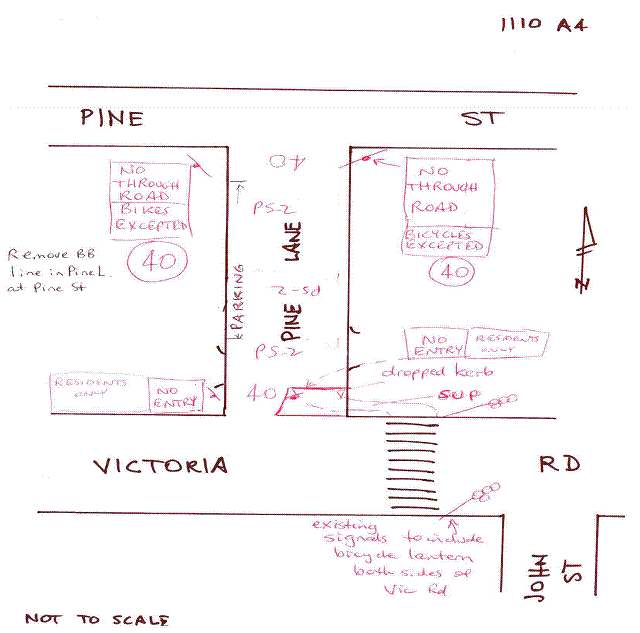 1110 A4
PINE ST
NO
THROUGH
ROAD
BIKES
EXCEPTED
40
Remove BB
line in Pine L.
at Pine St
PARKING
40
PS-2
PINE LANE
PS-2
PS-2
40
NO
THROUGH
ROAD
BICYCLES
EXCEPTED
40
N
NO
ENTRY
RESIDENTS
ONLY
dropped kerb
SUP
RESIDENTS
ONLY
NO
ENTRY
VICTORIA RD
existing
signals to include
bicycle lantern
both sides of
Vic Rd
JOHN
ST
NOT TO SCALE